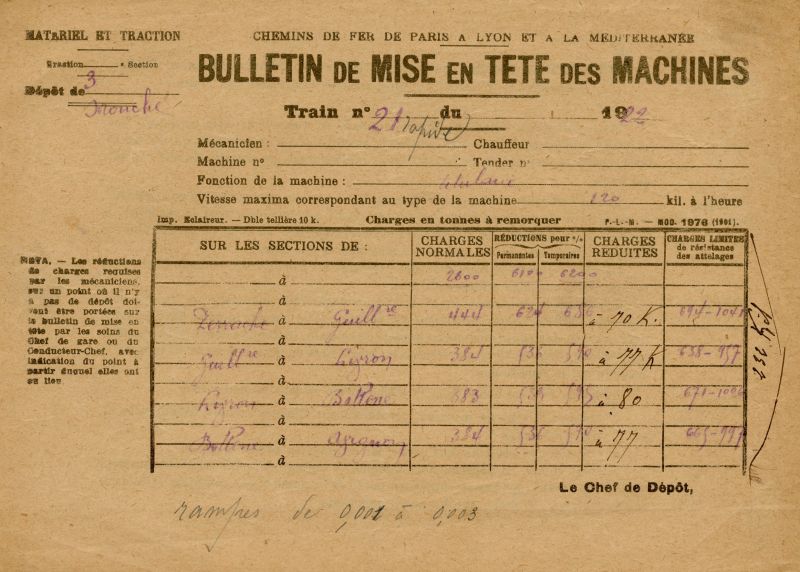 MATÉRIEL ET TRACTION
Traction Section
3
Dépôt de
CHEMINS DE FER DE PARIS A LYON ET A LA MÉDITERRANÉE
BULLETIN DE MISE EN TETE DES MACHINES
Train n° 21 rapide du 1922
Mécanicien : Chauffeur
Machine n° Tender n°
Fonction de la machine :
Vitesse maxima correspondant au type de la machine 120 kil. à l'heure
Imp. Eclaireur. — Dble tellière 10 k. Charges en tonnes à remorquer P.-L.-M. — MOD. 1976 (1901).
NOTA. — Les réductions
de charges requises
par les mécaniciens,
sur un point où il n'y
a pas de dépôt doi-
vent être portées sur
le bulletin de mise en
tête par les soins du
Chef de gare ou du
Conducteur-Chef, avec
indication du point à
partir duquel elles ont
eu lieu
SUR LES SECTIONS DE : CHARGES NORMALES RÉDUCTIONS pour % Permanentes Temporaires CHARGES REDUITES CHARGES LIMITES de résistance des attelages
à 2600 6100 6200
à
Perrache à 444 624 à 70 K. 694-1041
à
à 384 536 à 77 K 638-957
à
à Bollène 383 à 80
à
Bollène à Avignon 384 536 à 77 665-997
Le Chef de Dépôt,
rampes de 0,001 à 0,003